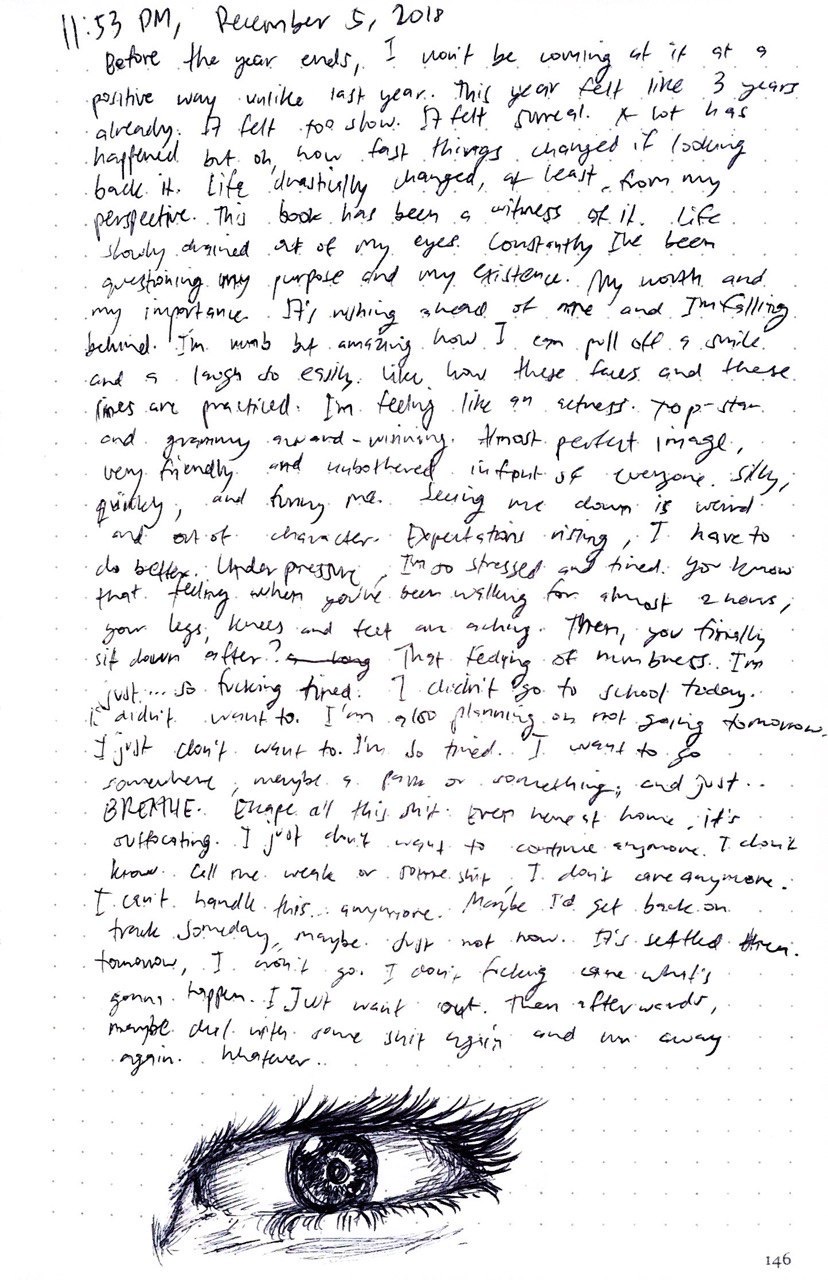 11:53 PM, December 5, 2018
Before the year ends, I won't be coming at it at a
positive way unlike last year. This year felt like 3 years
already. It felt too slow. It felt surreal. A lot has
happened but oh, how fast things changed if looking
back it. Life drastically changed, at least, from my
perspective. This book has been a witness of it. Life
slowly drained out of my eyes. Constantly I've been
questioning my purpose and my existence. My worth and
my importance. It's rushing ahead of me and I'm falling
behind. I'm numb but amazing how I can pull off a smile
and a laugh so easily. Like how these faces and these
lines are practiced. I'm feeling like an actress. Top-star
and grammy award-winning. Almost perfect image,
very friendly and unbothered infront of everyone. Silly,
quirky, and funny me. Seeing me down is weird
and out of character. Expectations rising, I have to
do better. Under pressure, I'm so stressed and tired. You know
that feeling when you've been walking for almost 2 hours,
your legs, knees and feet are aching. Then, you finally
sit down after? That feeling of numbness. I'm
just... so fucking tired. I didn't go to school today.
I didn't want to. I'm also planning on not going tomorrow.
I just don't want to. I'm so tired. I want to go
somewhere, maybe a park or something, and just..
BREATHE. Escape all this shit. Even here at home, it's
suffocating. I just don't want to continue anymore. I don't
know. Call me weak or some shit, I don't care anymore.
I can't handle this.. anymore. Maybe I'd get back on
track someday, maybe. Just not now. It's settled then.
tomorrow, I won't go. I don't fucking care what's
gonna happen. I just want out. Then afterwards,
maybe deal with some shit again and run away
again. Whatever..
146